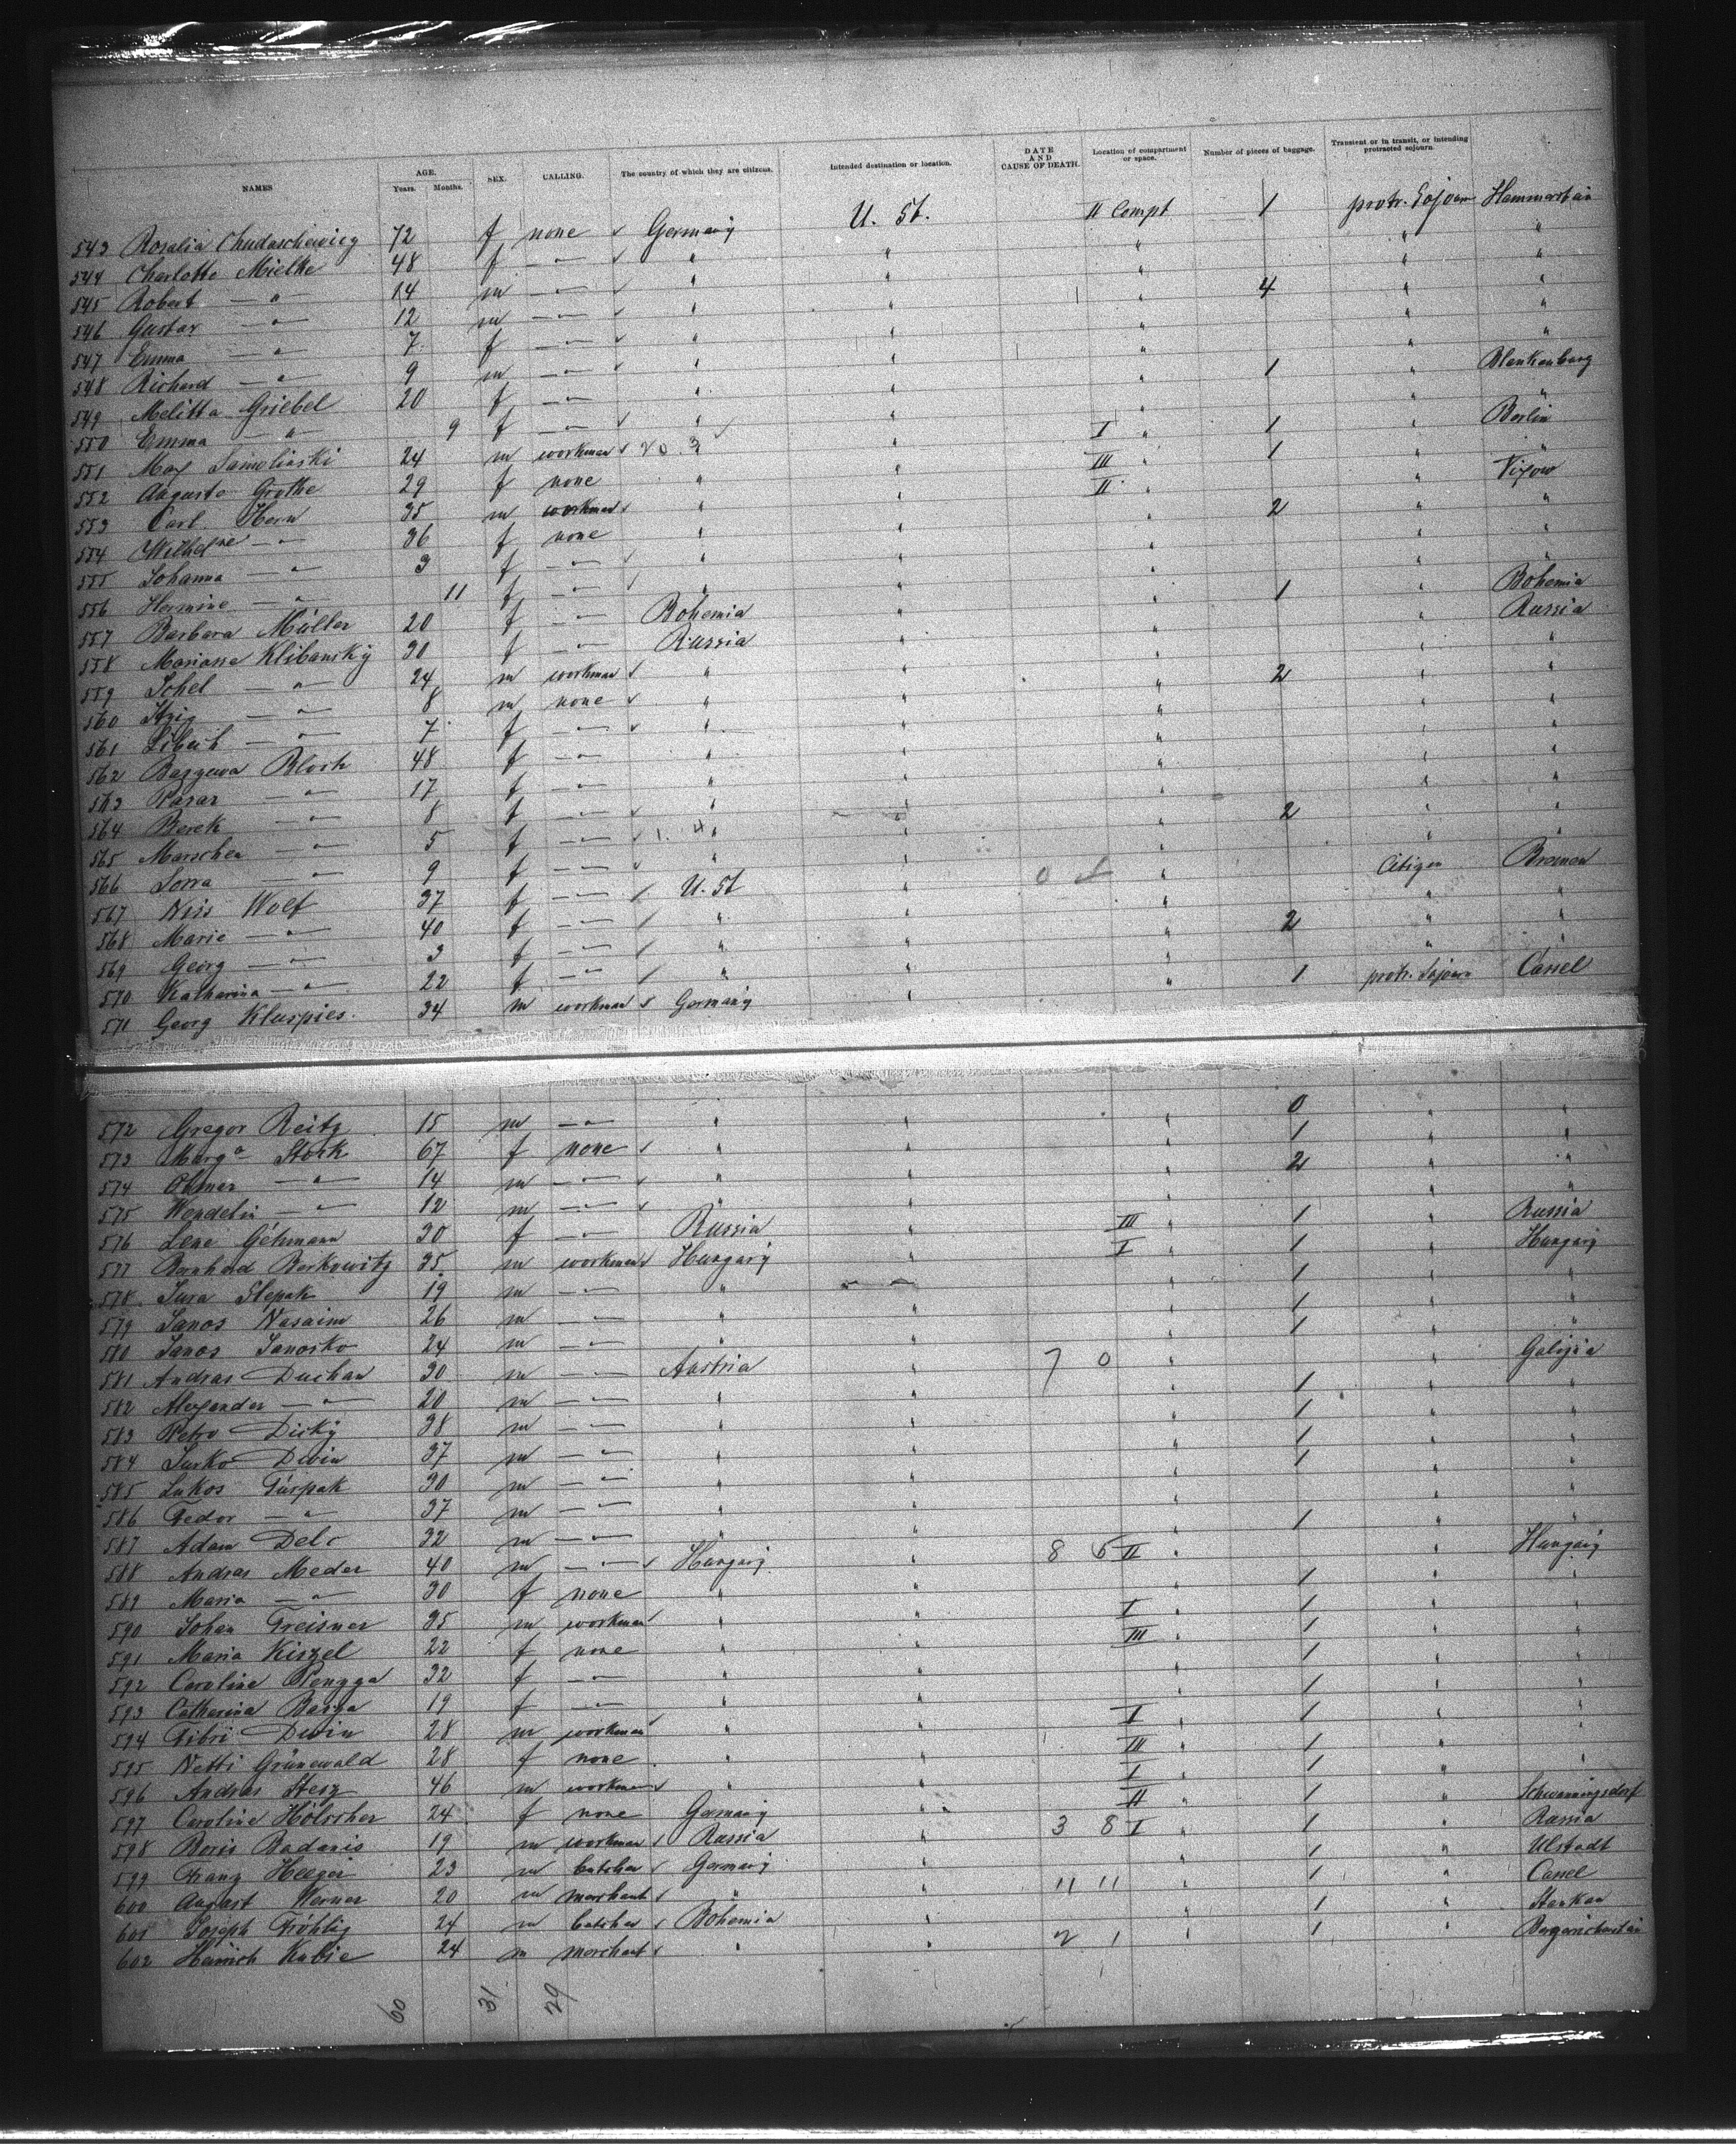 NAMES AGE. Years. Months. SEX. CALLING. The country of which they are citizens. Intended destination or location. DATE AND CAUSE OF DEATH. Location of compartment or space. Number of pieces of baggage. Transient or in transit, or intending protracted sojourn.
543 Rosalia Chudaschewicz 72 f none Germany U. St. II Compt 1 protr. Sojourn Hammerstein
544 Charlotte Mielke 48 f —"— " " " " "
545 Robert —"— 14 m —"— " " " 4 " "
546 Gustav —"— 12 m —"— " " " " "
547 Emma —"— 7 f —"— " " " " "
548 Richard —"— 9 m —"— " " " " "
549 Melitta Griebel 20 f —"— " " " 1 " Blankenburg
550 Emma —"— 9 f —"— " " " " "
551 Max 24 m workman " I " 1 " Berlin
552 Auguste Grothe 29 f none " " III " 1 " "
553 Carl Horn 35 m workman " " II " "
554 Wilhelne —"— 36 f none " " " 2 " "
555 Johanna —"— 3 f —"— " " " " "
556 Hermine —"— 11 f —"— " " " " "
557 Barbara Müller 20 f —"— Bohemia " " 1 " Bohemia
558 Mariasse Klibansky 30 f —"— Russia " " " Russia
559 Schel —"— 24 m workman " " " " "
560 Itzig —"— 8 m none " " " 2 " "
561 —"— 7 f —"— " " " " "
562 Bloch 48 f —"— " " " " "
563 —"— 17 f —"— " " " " "
564 Berek —"— 8 f —"— " " " " "
565 Marschen —"— 5 f —"— " " " 2 " "
566 Sorra —"— 9 f —"— " " " " "
567 Niss Wolf 37 f —"— U. St " " Citizen Bremen
568 Marie —"— 40 f —"— " " " " "
569 Georg —"— 3 f —"— " " " 2 " "
570 Katharina —"— 22 f —"— " " " " "
571 Georg Kluspies 34 m workman Germany " " 1 protr. Sojourn Cassel
572 Gregor Reitz 15 m —"— " " " 0 " "
573 Marga Stock 67 f none " " " 1 " "
574 —"— 14 m —"— " " " 2 " "
575 Wendelin —"— 12 m —"— " " " " "
576 Lene Gehmann 30 f —"— Russia " III " 1 " Russia
577 Bernhard Berkowitz 35 m workman Hungary " I " 1 " Hungary
578 Jura Slepak 19 m —"— " " " 1 " "
579 Janos Nasaim 26 m —"— " " " 1 " "
580 Janos Janosko 24 m —"— " " " 1 " "
581 Andras Duchan 30 m —"— Austria " 7 0 " " Galizia
582 Alexander —"— 20 m —"— " " " 1 " "
583 Petro Dicky 38 m — " " " 1 " "
584 Jurko Divin 37 m —"— " " " 1 " "
585 Lukos Turpak 30 m —"— " " " 1 " "
586 Fedor —"— 37 m —"— " " " " "
587 Adam 32 m —"— " " " 1 " "
588 Andras Meder 40 m —"— Hungary " 8 6 II " " Hungary
589 Maria —"— 30 f none " " " 1 " "
590 Johan Treisner 35 m workman " " I " 1 " "
591 Maria Kiszel 22 f none " " III " 1 " "
592 Caroline 32 f —"— " " " 1 " "
593 Catharina Barza 19 f —"— " " " 1 " "
594 Divin 28 m workman " " I " 1 " "
595 Netti Grünewald 28 f none " " III " 1 " "
596 Andras Stesz 46 m workman " " I " 1 " "
597 Caroline Hölscher 24 f none Germany " II " 1 "
598 Boris Badanis 19 m workman Russia " 3 8 I " 1 " Russia
599 Franz Heeger 23 m butcher Germany " " 1 " Ulstadt
600 August Werner 20 m merchant " " 11 11 " 1 " Cassel
601 Joseph Fröhlig 24 m butcher Bohemia " " 1 " Stankau
602 Heinrich Kubie 24 m merchant " " 2 1 " 1 "
60 31 29